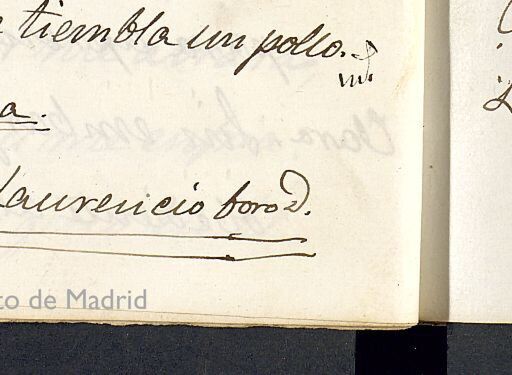 tiembla un pollo.
a.
Laurencio toro 2.
to de Madrid